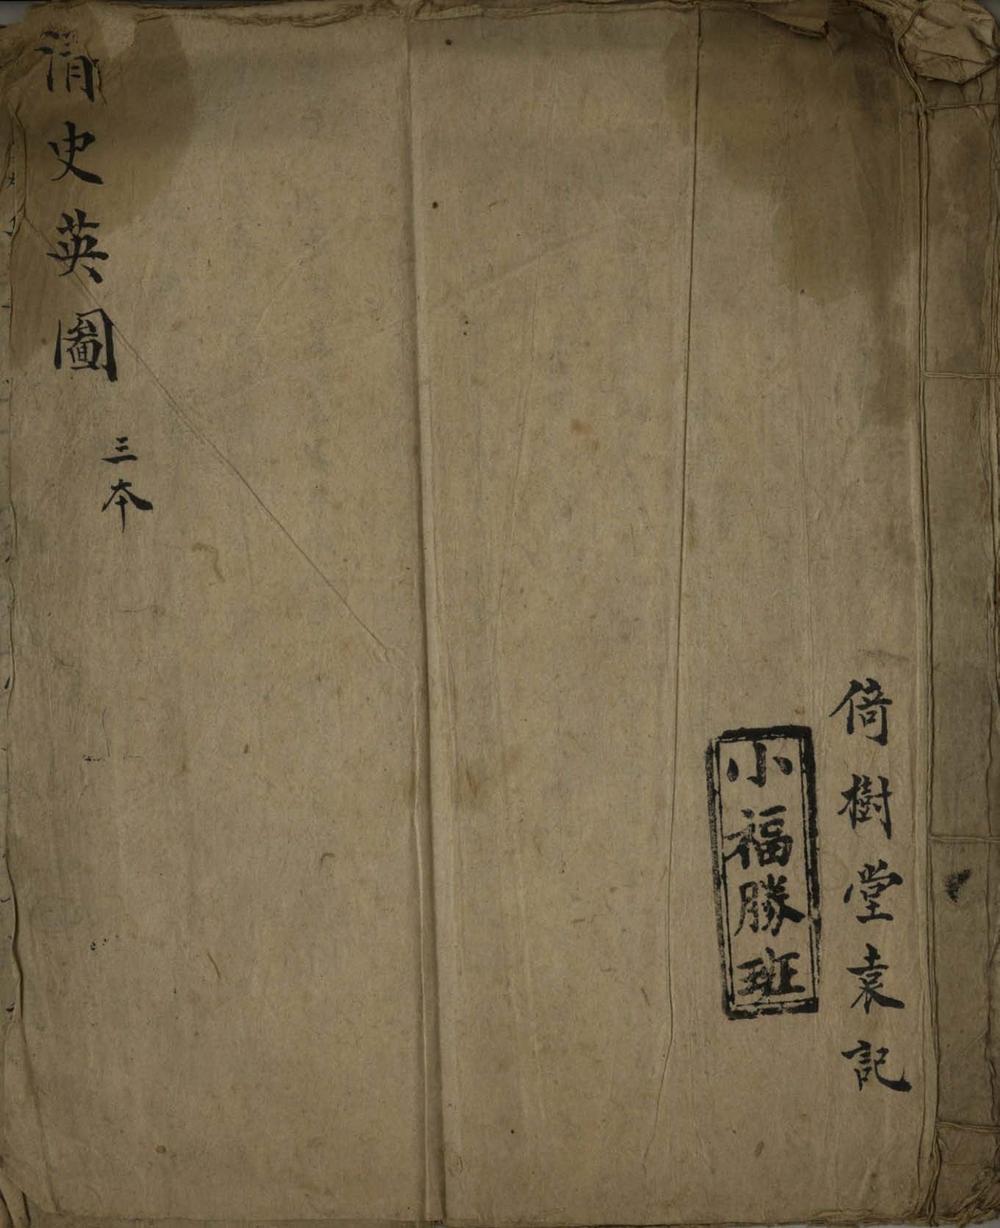 倚樹堂袁記
小福勝班
清史英圖
三本